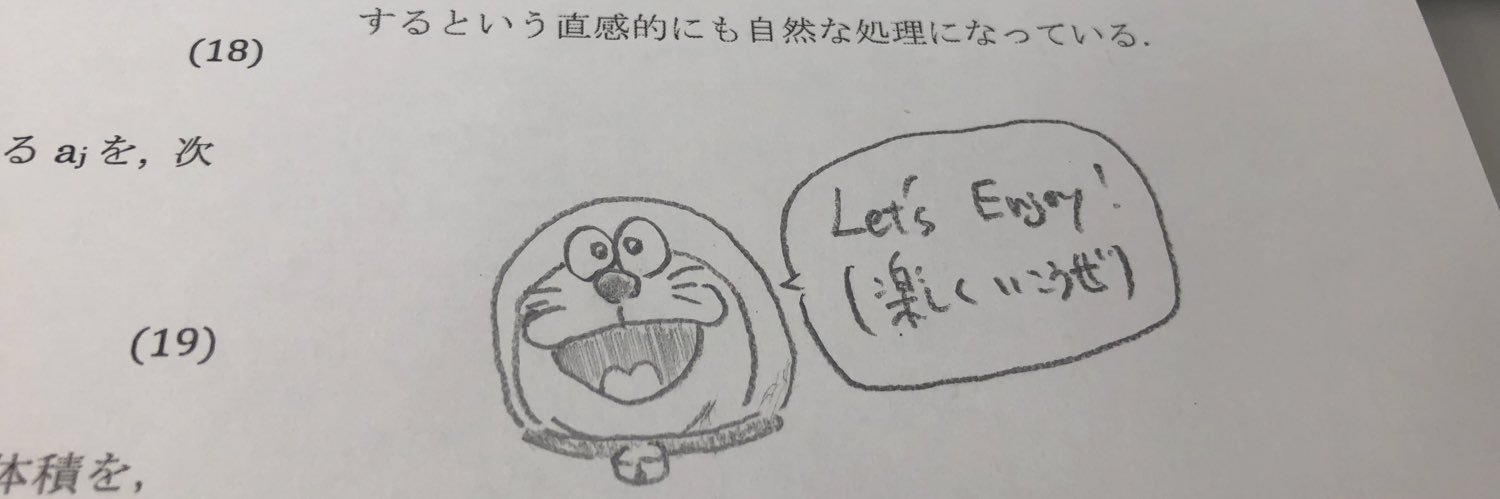 (18)
る ajを，次
(19)
体積を，
するという直感的にも自然な処理になっている．
Let's Enjoy!
(楽しくいこうぜ)